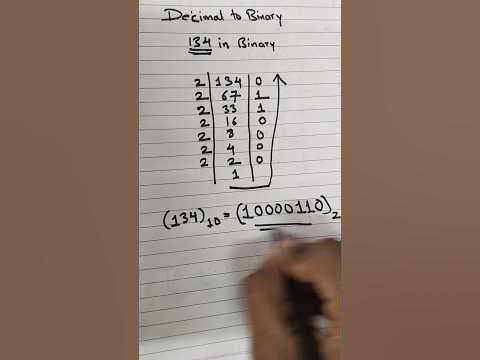 Decimal to Binary
134 in Binary
2 134 0
2 67 1
2 33 1
2 16 0
2 8 0
2 4 0
2 2 0
1
(134)10 = (10000110)2